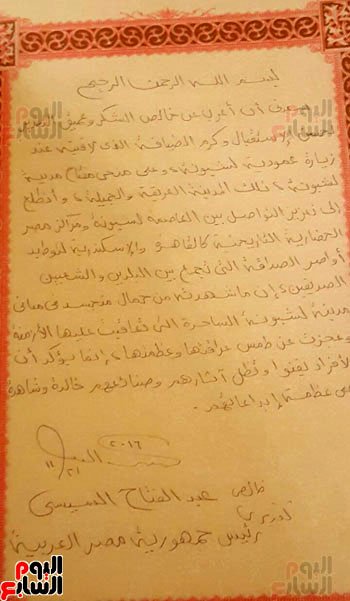 بسم الله الرحمن الرحيم
يسعدنى أن أعرب عن خالص الشكر وعميق
لحسن الإستقبال وكرم الضيافة الذى لاقيته عند
زيارة عمودية لشبونة، وعلى منحى مفتاح مدينة
لشبونة، تلك المدينة العريقة والجميلة، وأتطلع
إلى تعزيز التواصل بين العاصمه لشبونة ومراكز مصر
الحضارية التاريخية كالقاهرة والإسكندرية لتوطيد
أواصر الصداقة التى تجمع بين البلدين والشعبين
الصديقين، إن ما شهدته من جمال متجسد فى مبانى
مدينة لشبونة الساحرة التى تعاقبت عليها الأزمنة
وعجزت عن طمس عراقتها وعظمتها، إنما يؤكد أن
الأفراد ليفنوا وتظل آثارهم وصنائعهم خالدة وشاهدة
على عظمة إبداعاتهم.
٢٠١٦
٢١
١١
خالص
تقديرى
عبد الفتاح السيسى
رئيس جمهورية مصر العربية
اليوم السابع
اليوم السابع
اليوم السابع
اليوم السابع